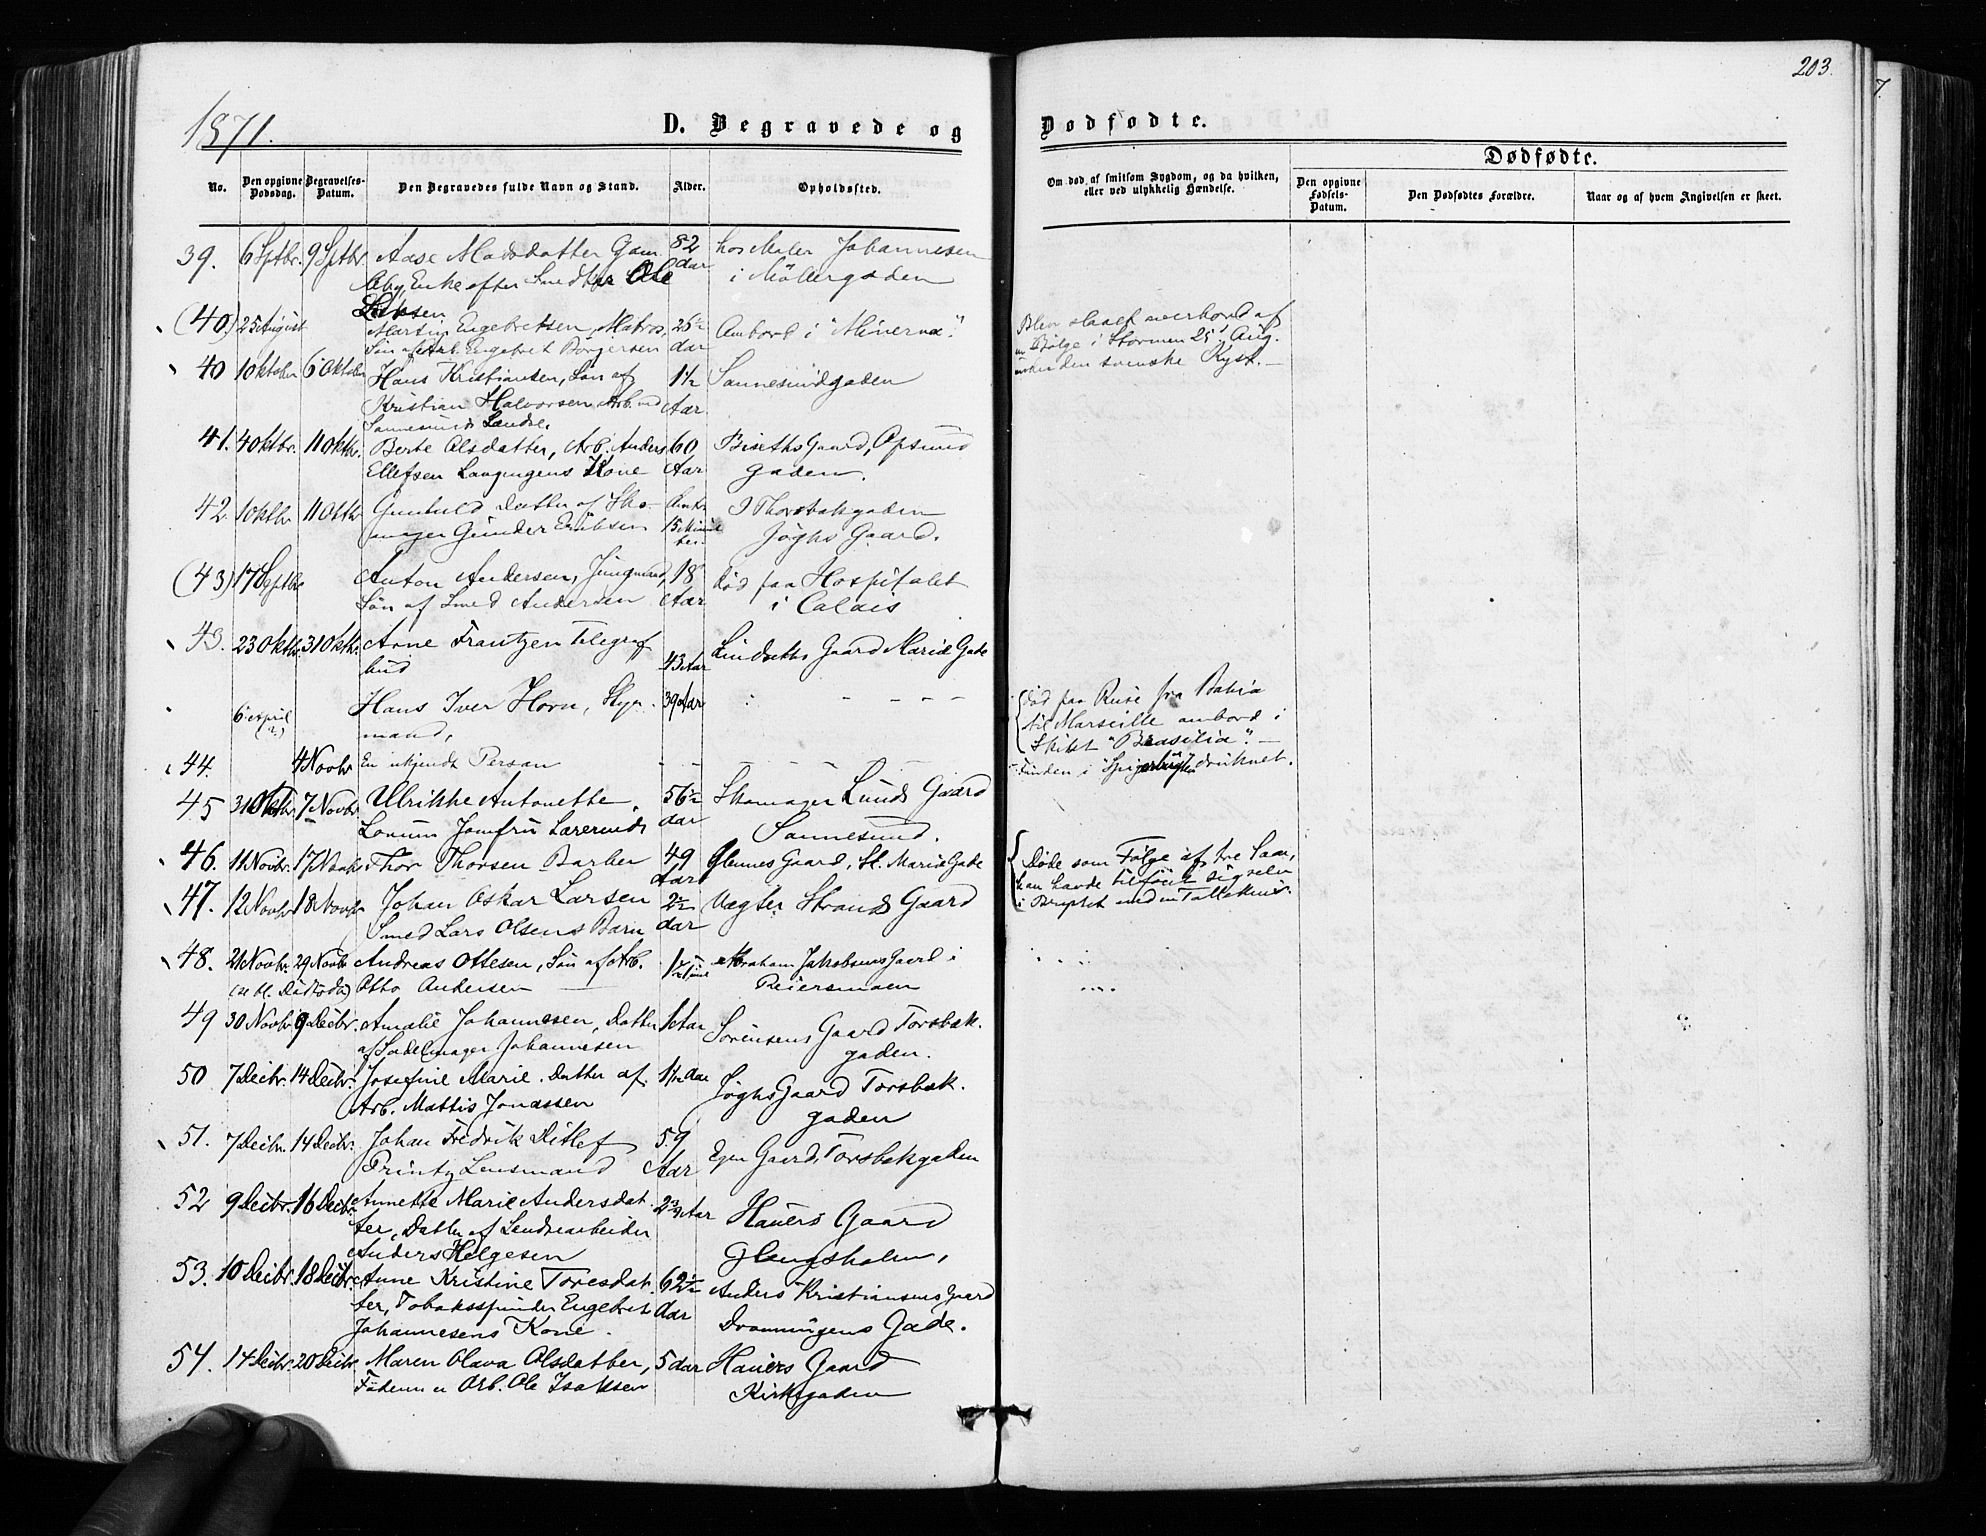 203.
7.
1871.
D. Begravede og
Dødfødte.
Dødfødte.
No.
Den opgivne Dødsdag.
Begravelses-Datum.
Den Begravedes fulde Navn og Stand.
Alder.
Opholdssted.
Om død af smitsom Sygdom, og da hvilken, eller ved ulykkelig Hændelse.
Den opgivne Fødsels-Datum.
Den Dødfødtes Forældre.
Naar og af hvem Angivelsen er skeet.
39. 6 Sptbr. 9 Sptbr. Aase Madsdatter Gam 82 hos Maler Johannesen
Enke efter Ole Aar i Möllergaden
(40) 25 August Martin Engebretsen, Matros, 26½ Ombord i "Minerva". Blev slaaet overbord af
Søn af Arb. Engebret Börjersen Aar en Bølge i Stormen 25' Aug.
40 1 Oktober 6 Oktober Hans Kristiansen, Søn af 1½ Sannesundgaden under den svenske Kyst. —
Kristian Halvorsen Arb. ved Aar.
Sannesunds Lændse.
41. 4 Oktbr. 11 Oktbr. Berte Olsdatter, Arb. Anders 60 Gaard, Opsund
Ellefsen Kone Aar gaden.
42. 1 Oktbr 11 Oktbr Gunhild Datter af Sko- I Thorsbakgaden
mager Gunder Eriksen 15 Jøghs Gaard.
(43) 17 Septbr Anton Andersen, Jungmand, 18 død paa Hospitalet
Søn af Smed Andersen Aar i Calais
43. 23 Oktbr. 31 Oktbr. Arne Frantzen Telegraf
bud 43 Aar Lindseths Gaard Mariæ Gade
6 April (?) Hans Iver Horn, Styr- 39 Aar død paa Reise fra Bahia
mand, til Marseille ombord i
Skibet "Brasilia". —
44. 4 Novbr En ukjendt Person — — Funden i druknet.
45 31 Oktbr 7 Novbr. Ulrikke Antonette 56½ Skomager Lunds Gaard
Jomfru Aar Sannesund.
46. 11 Novbr. 17 Novbr. Thor Thorsen Barber 49 Glennes Gaard, St. Mariæ Gade Døde som Følge af tre Saar,
Aar han havde tilføiet sig selv
47. 12 Novbr 18 Novbr Johan Oskar Larsen 2½ Vægter Strands Gaard i Brystet med en Tollekniv.
Smed Lars Olsens Barn Aar
48. 21 Novbr. 29 Novbr Andreas Ottesen, Søn af Arb. ½ Time Abraham Jakobsens Gaard i
Otto Andersen Reiersmoen
49 30 Novbr. 9 Decbr. Amalie Johannesen, Datter 1 Aar Sørensens Gaard Torsbak-
af Sadelmager Johannesen gaden.
50 7 Decbr. 14 Decbr. Josefine Marie, Datter af Aar Jøghs Gaard Torsbak-
Arb. Mattis Jonassen gaden
51. 7 Decbr. 14 Decbr. Johan Fredrik Ditlef 59
Printz Lensmand Aar Gaard, Torsbakgaden
52 9 Decbr. 16 Decbr. Annette Marie Andersdat- 2¾ Aar Hauers Gaard
ter, Datter af Lendsearbeider
Anders Helgesen Glengsholen,
53. 10 Decbr. 18 Decbr. Anne Kristine Toresdat- 62½ Anders Kristiansens Gaard
ter, Tobaksspinder Engebret Aar
Johannesens Kone. Dronningens Gade.
54. 14 Decbr. 20 Decbr. Maren Olava Olsdatter, 5 Aar Hauers Gaard
Faderen er Arb. Ole Isaksen Kirkegaden